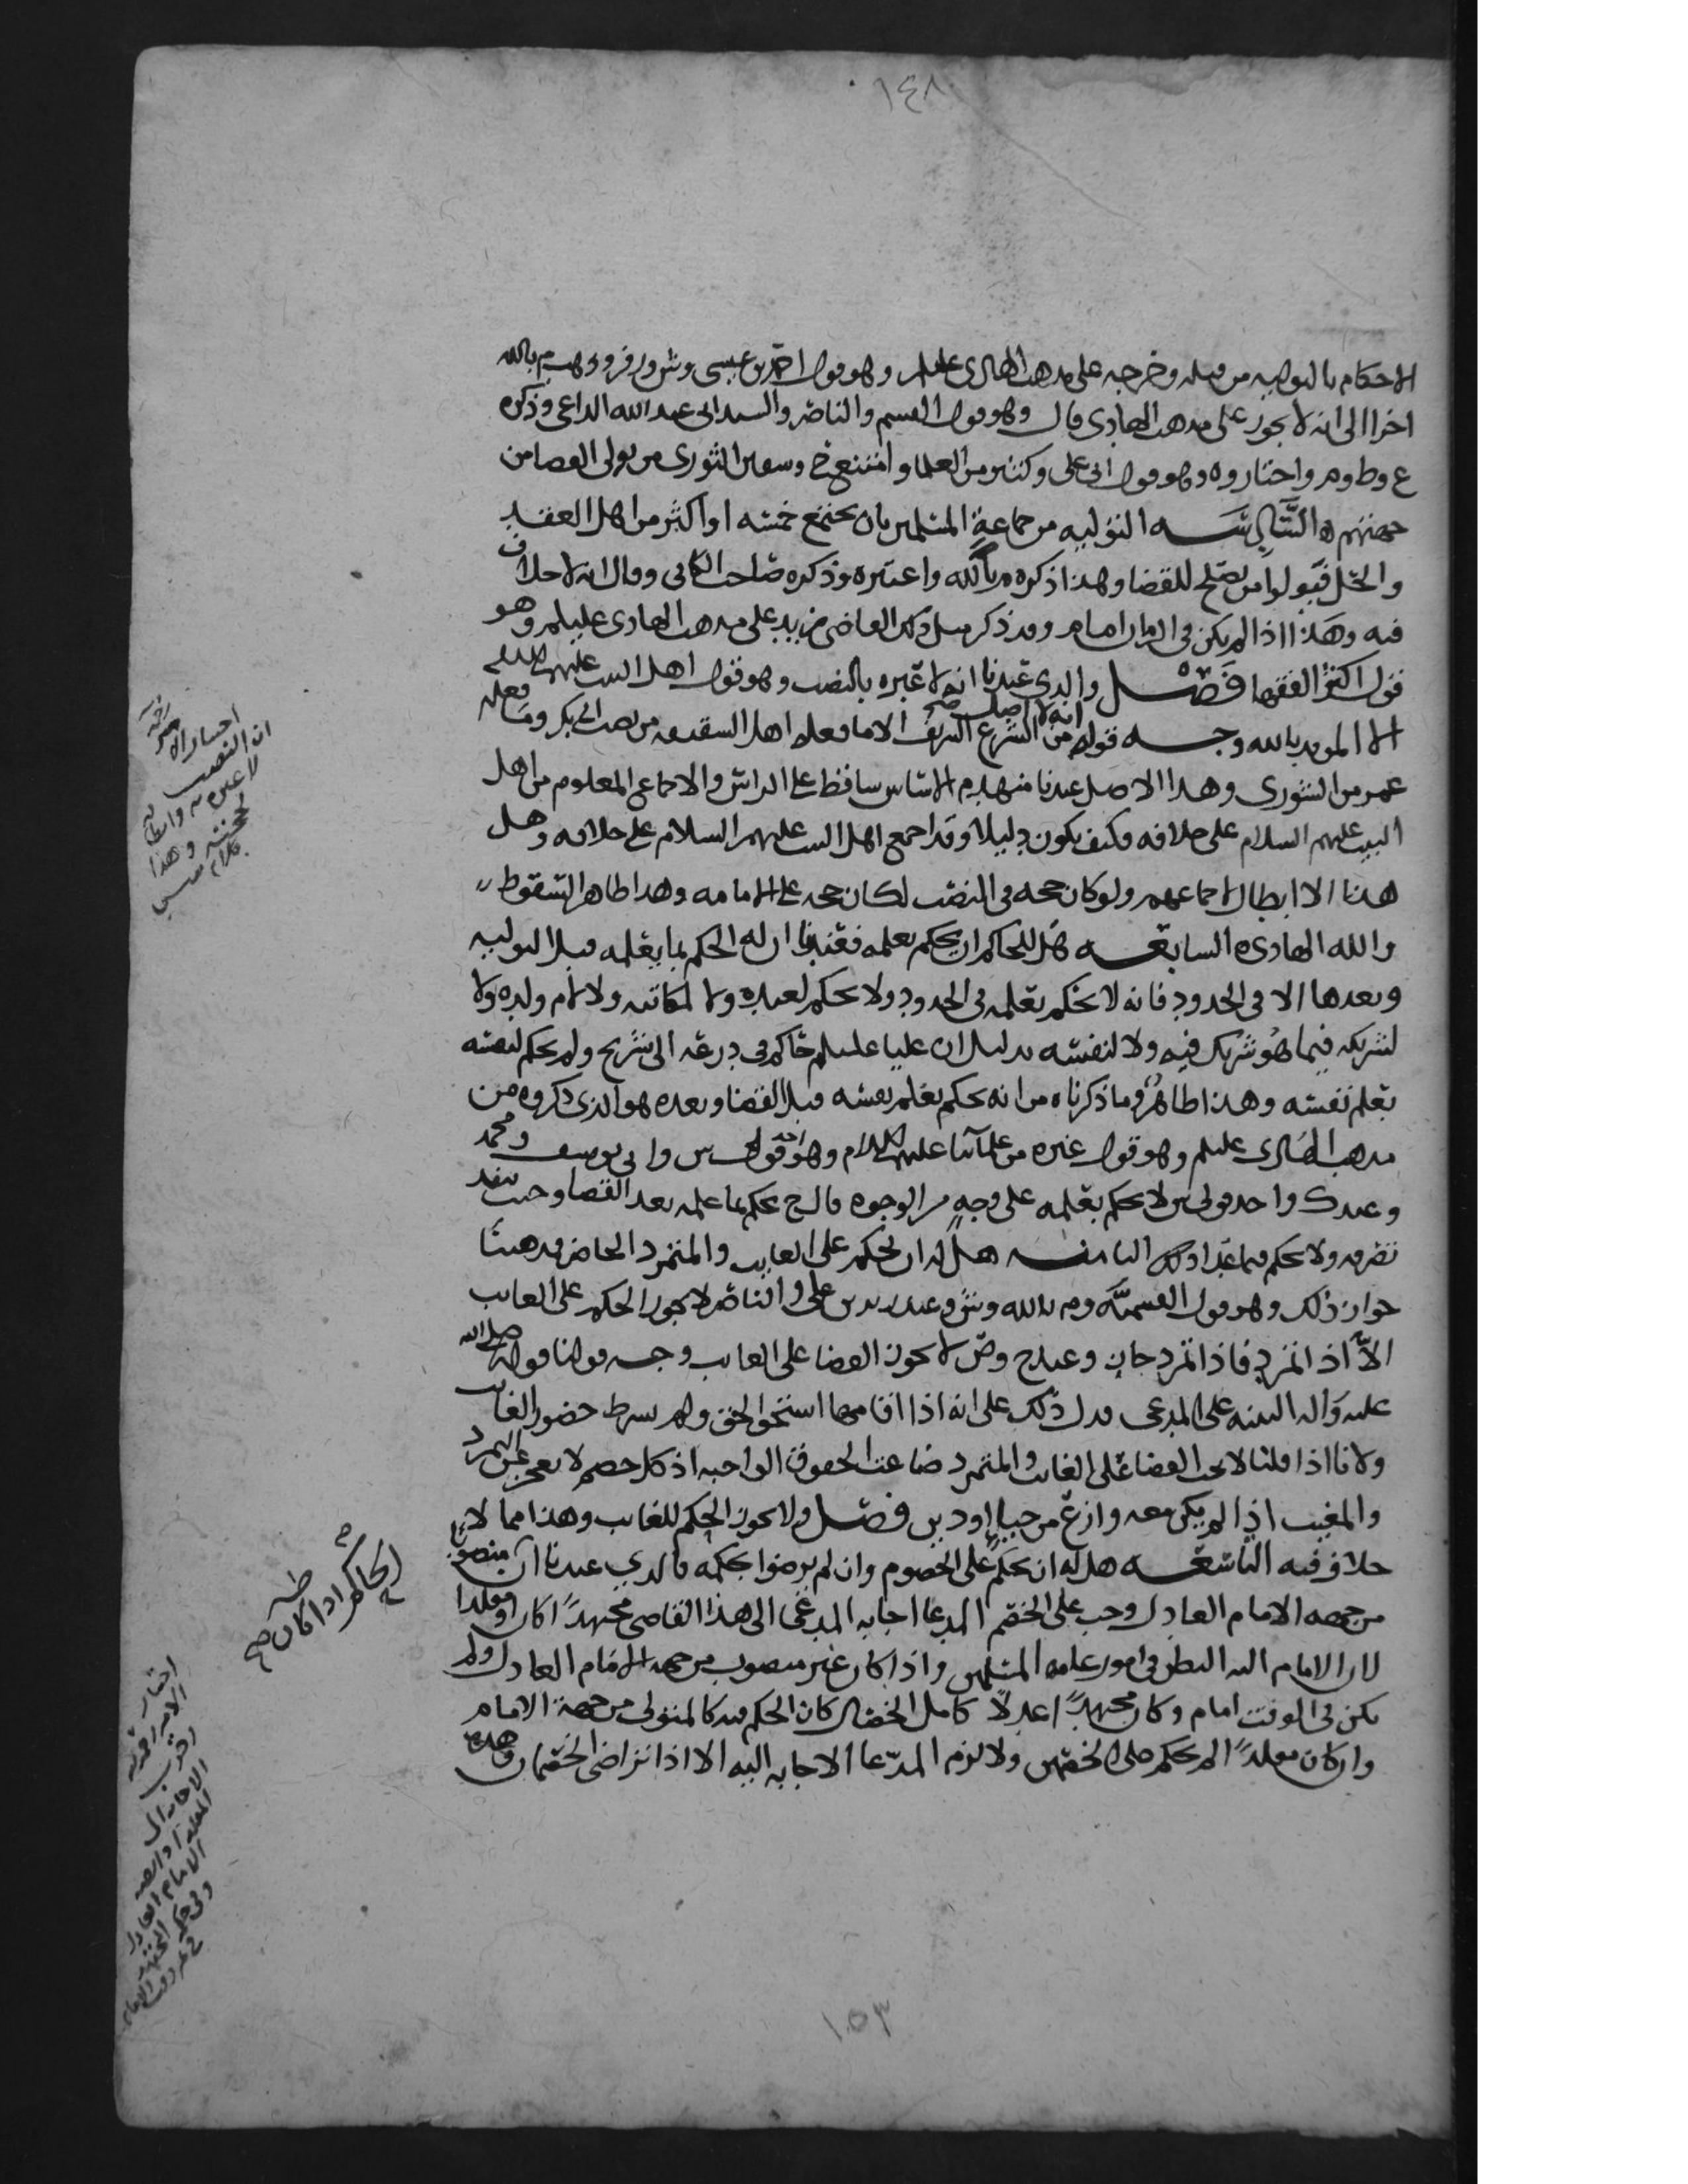 ١٤٨
الاحكام بالتوليه من قبله وخرجه على مذهب الهادى عليلم وهو قول احمد بن عيسى وش وزفر وذهب م بالله
اخرا الى انه لا يجوز على مذهب الهادى قال وهو قول القسم والناصر والسيد ابى عبد الله الداعى وذكره
ع وط وم واختاروه وهو قول ابى على وكثير من العلما وامتنع ح وسفين الثورى من تولى القضا من
جهتهم ه السَّادسَـــه التوليه من جماعة المسلمين بان يجتمع خمسه او اكثر من اهل العقد
والحل فيولوا من يصلح للقضا وهذا ذكره م بالله واعتبره وذكره صاحب الكافى وقال انه لا خلاف
فيه وهذا اذا لم يكن فى الزمان امام وقد ذكر مثل ذلك القاضى زيد على مذهب الهادى عليلم وهو
قول اكثر الفقها فَصْـــل والذى عندنا انه لا عبره بالنصب وهو قول اهل البيت عليهم السلام
الا المويد بالله وجـــه قولهم انه لا اصل صح من الشرع الشريف الا ما فعله اهل السقيفه من نصب ابى بكر وما فعله
عمر من الشورى وهذا الاصل عندنا منهدم الاساس ساقط على الراس والاجماع المعلوم من اهل
البيت عليهم السلام على خلافه فكيف يكون دليلا وقد اجمع اهل البيت عليهم السلام على خلافه وهل
هذا الا ابطال لاجماعهم ولو كان حجه فى النصب لكان حجه على الامامه وهذا ظاهر السقوط
والله الهادى ه السابعـــه هل للحاكم ان يحكم بعلمه فعندنا ان له الحكم بما يعلمه قبل التوليه
وبعدها الا فى الحدود فانه لا يحكم بعلمه فى الحدود ولا يحكم لعبده ولا لمكاتبه ولا لام ولده ولا
لشريكه فيما هو شريك فيه ولا لنفسه بدليل ان عليا عليلم حاكم فى درعه الى شريح ولم يحكم لنفسه
بعلم نفسه وهذا ظاهر وما ذكرناه من انه يحكم بعلم نفسه قبل القضا وبعده هو الذى ذكروه من
مذهب الهادى عليلم وهو قول غيره من علمآئنا عليهم السلام وهو احد قولى ش وابى يوسف ومحمد
وعند ك واحد قولى ش لا يحكم بعلمه على وجهٍ من الوجوه قال ح يحكم بما علمه بعد القضا وحيث ينفد
تصرفه ولا يحكم فيما عدا ذلك الثامنـــه هل له ان يحكم على الغايب والمتمرد الحاضر مذهبنا
جواز ذلك وهو قول القسميَّه وم بالله وش وعند زيد بن على والناصر لا يجوز الحكم على الغايب
الاّ اذا تمرد فاذا تمرد جاز وعند ح وص لا يجوز القضا على الغايب وجـــه قولنا قوله صلى الله
عليه وآله البينه على المدعى فدل ذلك على انه اذا اقامها استحق الحق ولم يشرط حضور الغايب
ولانا اذا قلنا لا يجب القضا على الغايب والمتمرد ضاعت الحقوق الواجبه اذ كل خصم لا يعجز عن التمرد
والمغيب اذا لم يكن معه وازع من حيا او دين فصــل ولا يجوز الحكم للغايب وهذا مما لا
خلاف فيه التاسعـــه هل له ان يحكم على الخصوم وان لم يرضوا بحكمه فالذي عندنا ان منصوبا
من جهه الامام العادل وجب على الخصم المدعا اجابه المدعى الى هذا القاضى مجتهداً كان او مقلدا
لان الامام اليه النظر فى امور عامه المسلمين واذا كان غير منصوب من جهه الامام العادل ولم
يكن فى الوقت امام وكان مجتهداً عدلاً كامل الخصال كان الحكم فيه كالمتولى من جهة الامام
وان كان مقلداً لم يحكم على الخصمين ولا لزم المدّعا الاجابه اليه الا اذا تراضى الخصمان وهذه
ان النصب
لا عبره به
وهذا
الحاكم اذا كان صح
اختار
الامام العادل
١٥٣